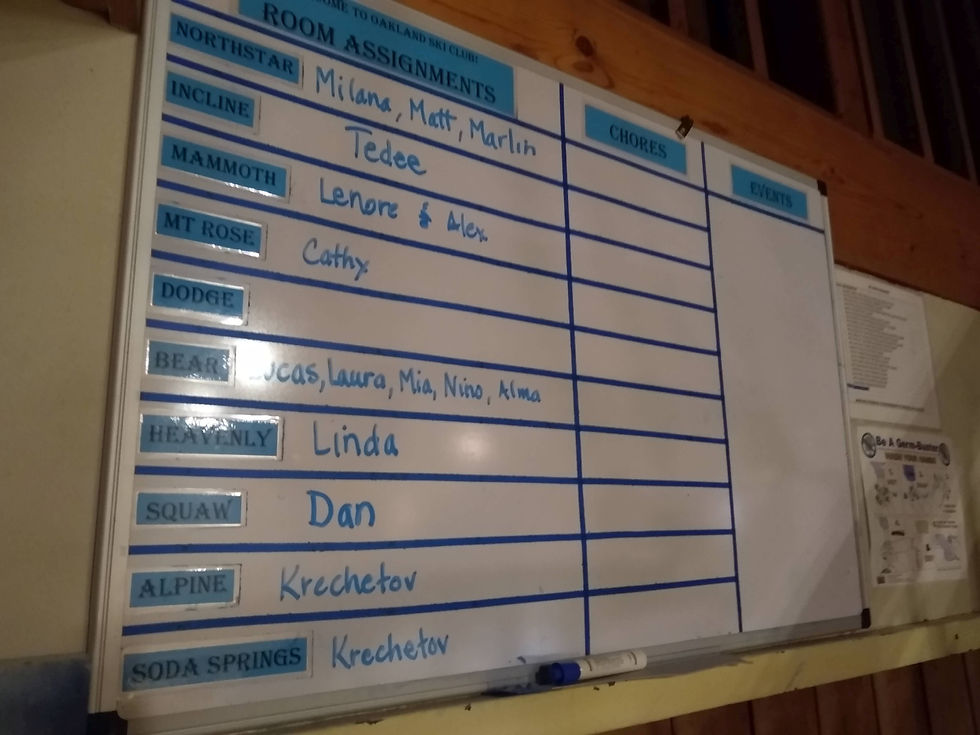 COME TO OAKLAND SKI CLUB!
ROOM ASSIGNMENTS
CHORES
EVENTS
NORTHSTAR Milana, Matt, Marlin
INCLINE Tedee
MAMMOTH Lenore & Alex
MT ROSE Cathy
DODGE
BEAR Lucas, Laura, Mia, Nino, Alma
HEAVENLY Linda
SQUAW Dan
ALPINE Krechetov
SODA SPRINGS Krechetov
Be A Germ-Buster
WASH YOUR HANDS